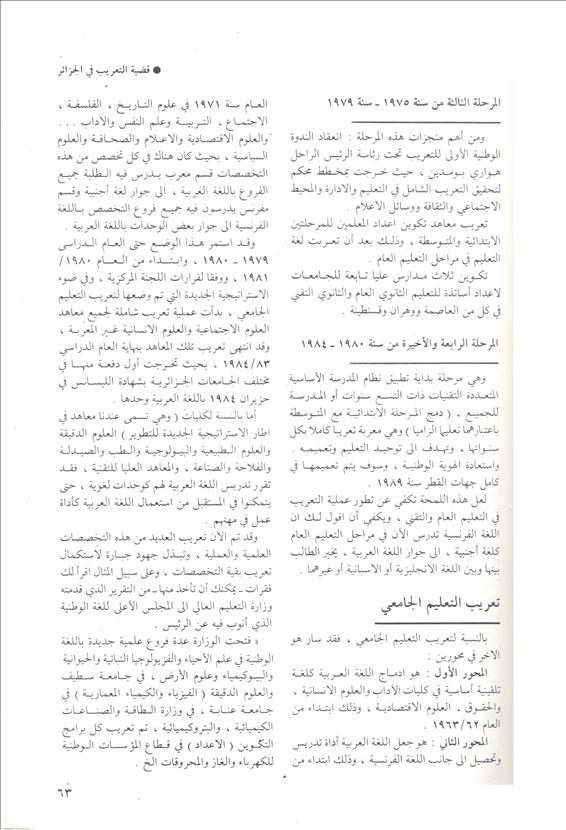 ● قضية التعريب في الجزائر
المرحلة الثالثة من سنة ١٩٧٥ ـ سنة ١٩٧٩
ومن أهم منجزات هذه المرحلة : انعقاد الندوة
الوطنية الأولى للتعريب تحت رئاسة الرئيس الراحل
هواري بومدين ، حيث خرجت بمخطط محكم
لتحقيق التعريب الشامل في التعليم والادارة والمحيط
الاجتماعي والثقافة ووسائل الاعلام .
تعريب معاهد تكوين اعداد المعلمين للمرحلتين
الابتدائية والمتوسطة ، وذلك بعد أن تعربت لغة
التعليم في مراحل التعليم العام .
تكوين ثلاث مدارس عليا تابعة للجامعات
لاعداد أساتذة للتعليم الثانوي العام والثانوي التقني
في كل من العاصمة ووهران وقسنطينة .
المرحلة الرابعة والأخيرة من سنة ١٩٨٠ ـ ١٩٨٤
وهي مرحلة بداية تطبيق نظام المدرسة الأساسية
المتعددة التقنيات ذات التسع سنوات أو المدرسة
للجميع ، ( دمج المرحلة الابتدائية مع المتوسطة
باعتبارهما تعليما الزاميا ) وهي معربة تعريبا كاملا بكل
سنواتها ، وتهدف الى توحيد التعليم وتعميمه .
واستعادة الهوية الوطنية ، وسوف يتم تعميمها في
كامل جهات القطر سنة ١٩٨٩ .
لعل هذه اللمحة تكفي عن تطور عملية التعريب
في التعليم العام والتقني ، ويكفي أن اقول لك ان
اللغة الفرنسية تدرس الآن في مراحل التعليم العام
كلغة أجنبية ، الى جوار اللغة العربية ، يخير الطالب
بينها وبين اللغة الانجليزية أو الاسبانية أو غيرهما .
تعريب التعليم الجامعي
بالنسبة لتعريب التعليم الجامعي ، فقد سار هو
الاخر في محورين :
المحور الأول : هو ادماج اللغة العربية كلغة
تلقينية أساسية في كليات الآداب والعلوم الانسانية ،
والحقوق ، العلوم الاقتصادية ، وذلك ابتداء من
العام ١٩٦٣/٦٢ .
المحور الثاني : هو جعل اللغة العربية أداة تدريس
وتحصيل الى جانب اللغة الفرنسية ، وذلك ابتداء من
العام سنة ١٩٧١ في علوم التاريخ ، الفلسفة ،
الاجتماع ، التربية وعلم النفس والآداب . . .
والعلوم الاقتصادية والاعلام والصحافة والعلوم
السياسية ، بحيث كان هناك في كل تخصص من هذه
التخصصات قسم معرب يدرس فيه الطلبة جميع
الفروع باللغة العربية ، الى جوار لغة أجنبية وقسم
مفرنس يدرسون فيه جميع فروع التخصص باللغة
الفرنسية الى جوار بعض الوحدات باللغة العربية .
وقد استمر هذا الوضع حتى العام الدراسي
١٩٧٩ ـ ١٩٨٠ ، وابتداء من العام ١٩٨٠/
١٩٨١ ، ووفقا لقرارات اللجنة المركزية ، وفي ضوء
الاستراتيجية الجديدة التي تم وضعها لتعريب التعليم
الجامعي ، بدأت عملية تعريب شاملة لجميع معاهد
العلوم الاجتماعية والعلوم الانسانية غير المعربة ،
وقد انتهى تعريب تلك المعاهد بنهاية العام الدراسي
١٩٨٤/٨٣ ، بحيث تخرجت أول دفعة منها في
مختلف الجامعات الجزائرية بشهادة الليسانس في
حزيران ١٩٨٤ باللغة العربية وحدها .
أما بالنسبة لكليات ( وهي تسمى عندنا معاهد في
اطار الاستراتيجية الجديدة للتطوير ) العلوم الدقيقة
والعلوم الطبيعية والبيولوجية والطب والصيدلة
والفلاحة والصناعة ، والمعاهد العليا للتقنية ، فقد
تقرر تدريس اللغة العربية لهم كوحدات لغوية ، حتى
يتمكنوا في المستقبل من استعمال اللغة العربية كأداة
عمل في مهنهم .
وقد تم الآن تعريب العديد من هذه التخصصات
العلمية والعملية ، وتبذل جهود جبارة لاستكمال
تعريب بقية التخصصات ، وعلى سبيل المثال اقرأ لك
فقرات ـ يمكنك أن تأخذ منها ـ من التقرير الذي قدمته
وزارة التعليم العالي الى المجلس الأعلى للغة الوطنية
الذي أنوب فيه عن الرئيس .
« فتحت الوزارة عدة فروع علمية جديدة باللغة
الوطنية في علم الأحياء والفزيولوجيا النباتية والحيوانية
والبيوكيمياء وعلوم الأرض ، في جامعة سطيف
والعلوم الدقيقة ( الفيزياء والكيمياء المعمارية ) في
جامعة عنابة ، في وزارة الطاقة والصناعات
الكيميائية ، والبتروكيميائية ، تم تعريب كل برامج
التكوين ( الاعداد ) في قطاع المؤسسات الوطنية
للكهرباء والغاز والمحروقات الخ .
٦٣